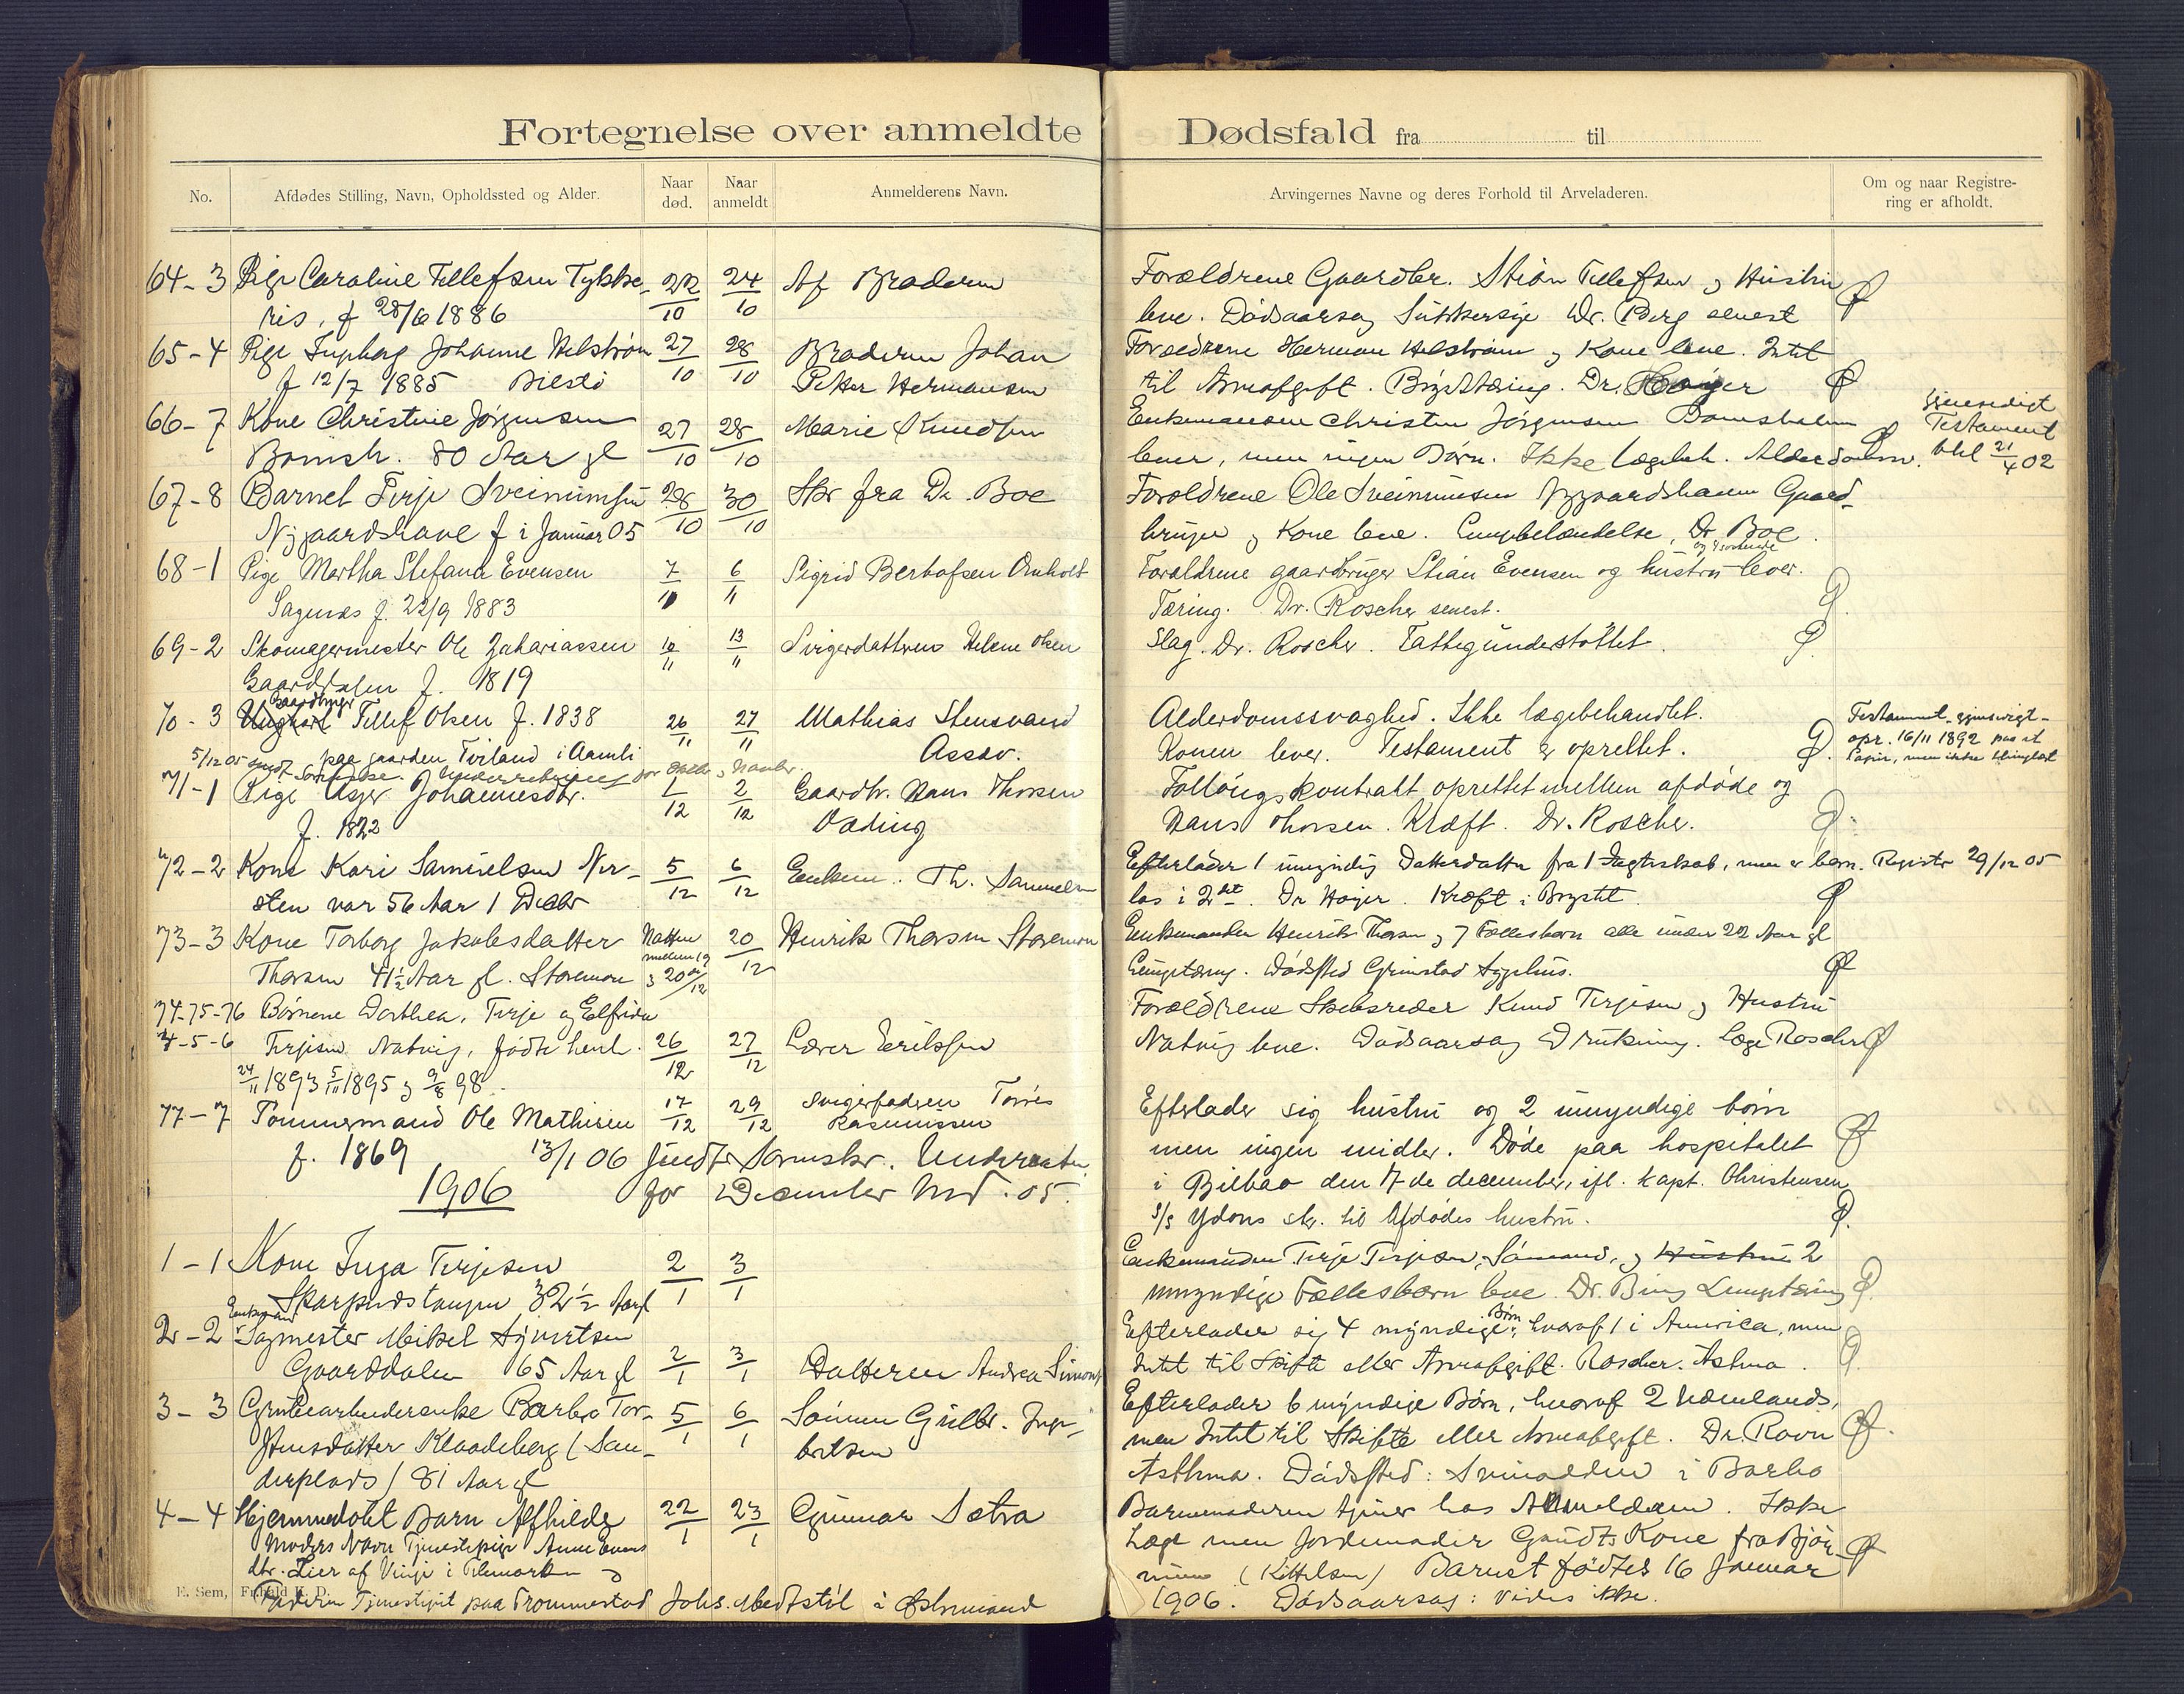 Fortegnelse over anmeldte Dødsfald fra til
No. Afdødes Stilling, Navn, Opholdssted og Alder. Naar død. Naar anmeldt Anmelderens Navn. Arvingernes Navne og deres Forhold til Arveladeren. Om og naar Registrering er afholdt.
64-3 Pige Caroline Tellefsen 22/10 24/10 Af Broderen Forældrene Gaardbr. Stian Tellefsen og Hustru
ris, f 28/6 1886 leve. Dødsaarsag Sukkersyge Dr. Berg senest
65-4 Pige Ingborg Johanne Helstrøm 27/10 28/10 Broderen Johan Forældrene Herman Helstrøm og Kone leve. Intet
f 12/7 1885 Petter Hermansen til Arveafgift. Brysttæring. Dr. Høyer
66-7 Kone Christine Jørgensen 27/10 28/10 Marie Knudsen Enkemanden Christen Jørgensen Bomsholmen gjensidigt
Bomsh. 80 Aar gl lever, men ingen Børn. Ikke lægebeh. Alderdomsv. Testament
21/4 02
67-8 Barnet Terje Sveinunsen 28/10 30/10 Skr fra Dr. Boe Forældrene Ole Sveinunsen Nygaardshaven Gaard-
Nygaardshave f i Januar 05 bruger og Kone leve. Lungebetændelse, Dr Boe.
68-1 Pige Martha Stefana Evensen 7/11 6/11 Sigrid Berthofsen Ornholt Forældrene gaardbruger Stian Evensen og hustru lever.
Sagenæs f. 22/9 1883 Tæring. Dr. Roscher senest.
69-2 Skomagermester Ole Zakariassen 12/11 13/11 Svigerdatteren Helene Olsen Slag. Dr. Roscher. Fattigunderstøttet.
Gaarddalen f. 1819
70-3 Ungkarl Gaardbruger Tellef Olsen f. 1838 26/11 27/11 Mathias Stensvand Alderdomssvaghed. Ikke lægebehandlet. Testament gjensidigt
5/12 05 paa gaarden Tveiland i Aamli Assev. Konen lever. Testament er oprettet. opr. 16/11 1892
71-1 Pige Asger Johannesdtr. 1/12 2/12 Gaardbr. Hans Thorsen Føllougskontrakt oprettet mellem afdøde og
f. 1822 Hans Thorsen. Kræft. Dr. Roscher.
72-2 Kone Kari Samuelsen 5/12 6/12 Enkem. Th. Samuelsen Efterlader 1 umyndig Datterdatter fra 1 Ægteskab, men er barn- Registr 29/12 05
sten var 56 Aar 1 Decbr løs i 2det. Dr Høyer. Kræft i Brystet
73-3 Kone Torborg Jakobsdatter Natten mellem 19 og 20de/12 20/12 Henrik Thorsen Storemoen Enkemanden Henrik Thorsen og 7 Fællesbørn alle under 22 Aar gl
Thorsen 41½ Aar gl. Storemoen Lungetæring. Dødssted Grimstad Sygehus.
74-75-76 Børnene Dorthea, Terje og Elfrida Forældrene Skibsreder Knud Terjesen og Hustru
4-5-6 Terjesen Natvig, fødte henh. 26/12 27/12 Lærer Eriksen Natvig leve. Dødsaarsag Drukning. Læge Roscher
24/11 1893 5/11 1895 og 9/8 98.
77-7 Tømmermand Ole Mathisen 17/12 29/12 Svigerfadren Tørres Rasmussen Efterlader sig hustru og 2 umyndige børn
f. 1869 13/1 06 for December Md. 05. men ingen midler. Døde paa hospitalet
1906 i Bilbao den 17de december, ifl. kapt. Christensen
S/S Ydons skr. til Afdødes hustru.
1-1 Kone Inga Terjesen 2/1 3/1 Enkemanden Terje Terjesen, Sømand, og Hustru 2
32½ Aar gl umyndige Fællesbørn leve. Dr. Bing Lungetæring
2-2 Enkemand Sagmester Mikel 2/1 3/1 Datteren Andrea Efterlader sig 4 myndige Børn, hvoraf 1 i America, men
Gaarddalen 65 Aar gl Intet til Skifte eller Arveafgift. Roscher. Astma.
3-3 Grubearbeiderenke Barbro Tor- 5/1 6/1 Sønnen Gulbr. Inge- Efterlader 6 myndige Børn, hvoraf 2 udenlands,
stensdatter Klaadeberg (San- bretsen men Intet til Skifte eller Arveafgift. Dr. Ravn
derplads) 81 Aar gl Asthma. Dødssted: i Barbo
4-4 Hjemmedøbt Barn Alfhilde 22/1 23/1 Gunnar Sætra Barnemoderen tjener hos Anmelderen. Ikke
Moders Navn Tjenestepige Anne Evens Læge men Jordemoder Gaudts Kone fra
dtr. Lier af Vinje i Telemarken og (Kittelsen) Barnet fødtes 16 Januar
Faderen paa Frommestad Johs. 1906. Dødsaarsag: vides ikke.
E. Sem, Fr.hald K. D.